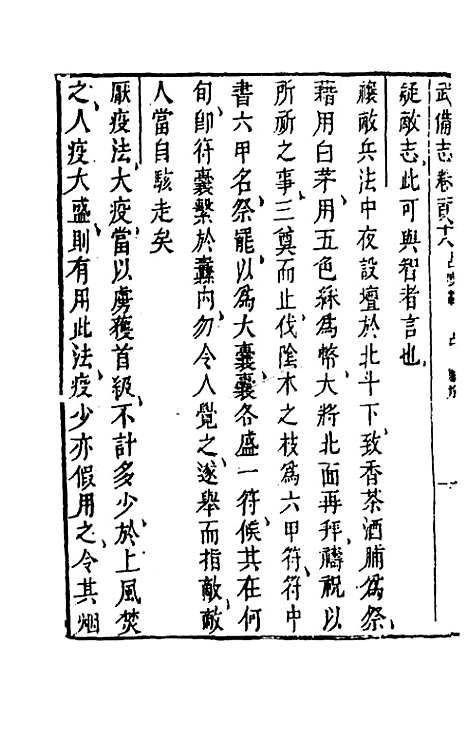 武備志卷百十六
疑敵志此可與智者言也
禳敵兵法中夜設壇於北斗下致香茶酒脯為祭
藉用白茅用五色綵為幣大將北面再拜禱祝以
所祈之事三奠而止伐陰木之枝為六甲符符中
書六甲名祭罷以為大囊囊各盛一符候其在何
旬即符囊繫於纛内勿令人覺之遂舉而指敵敵
人當自駭走矣
厭疫法大疫當以虜獲首級不計多少於上風焚
之人疫大盛則有用此法疫少亦假用之令其烟